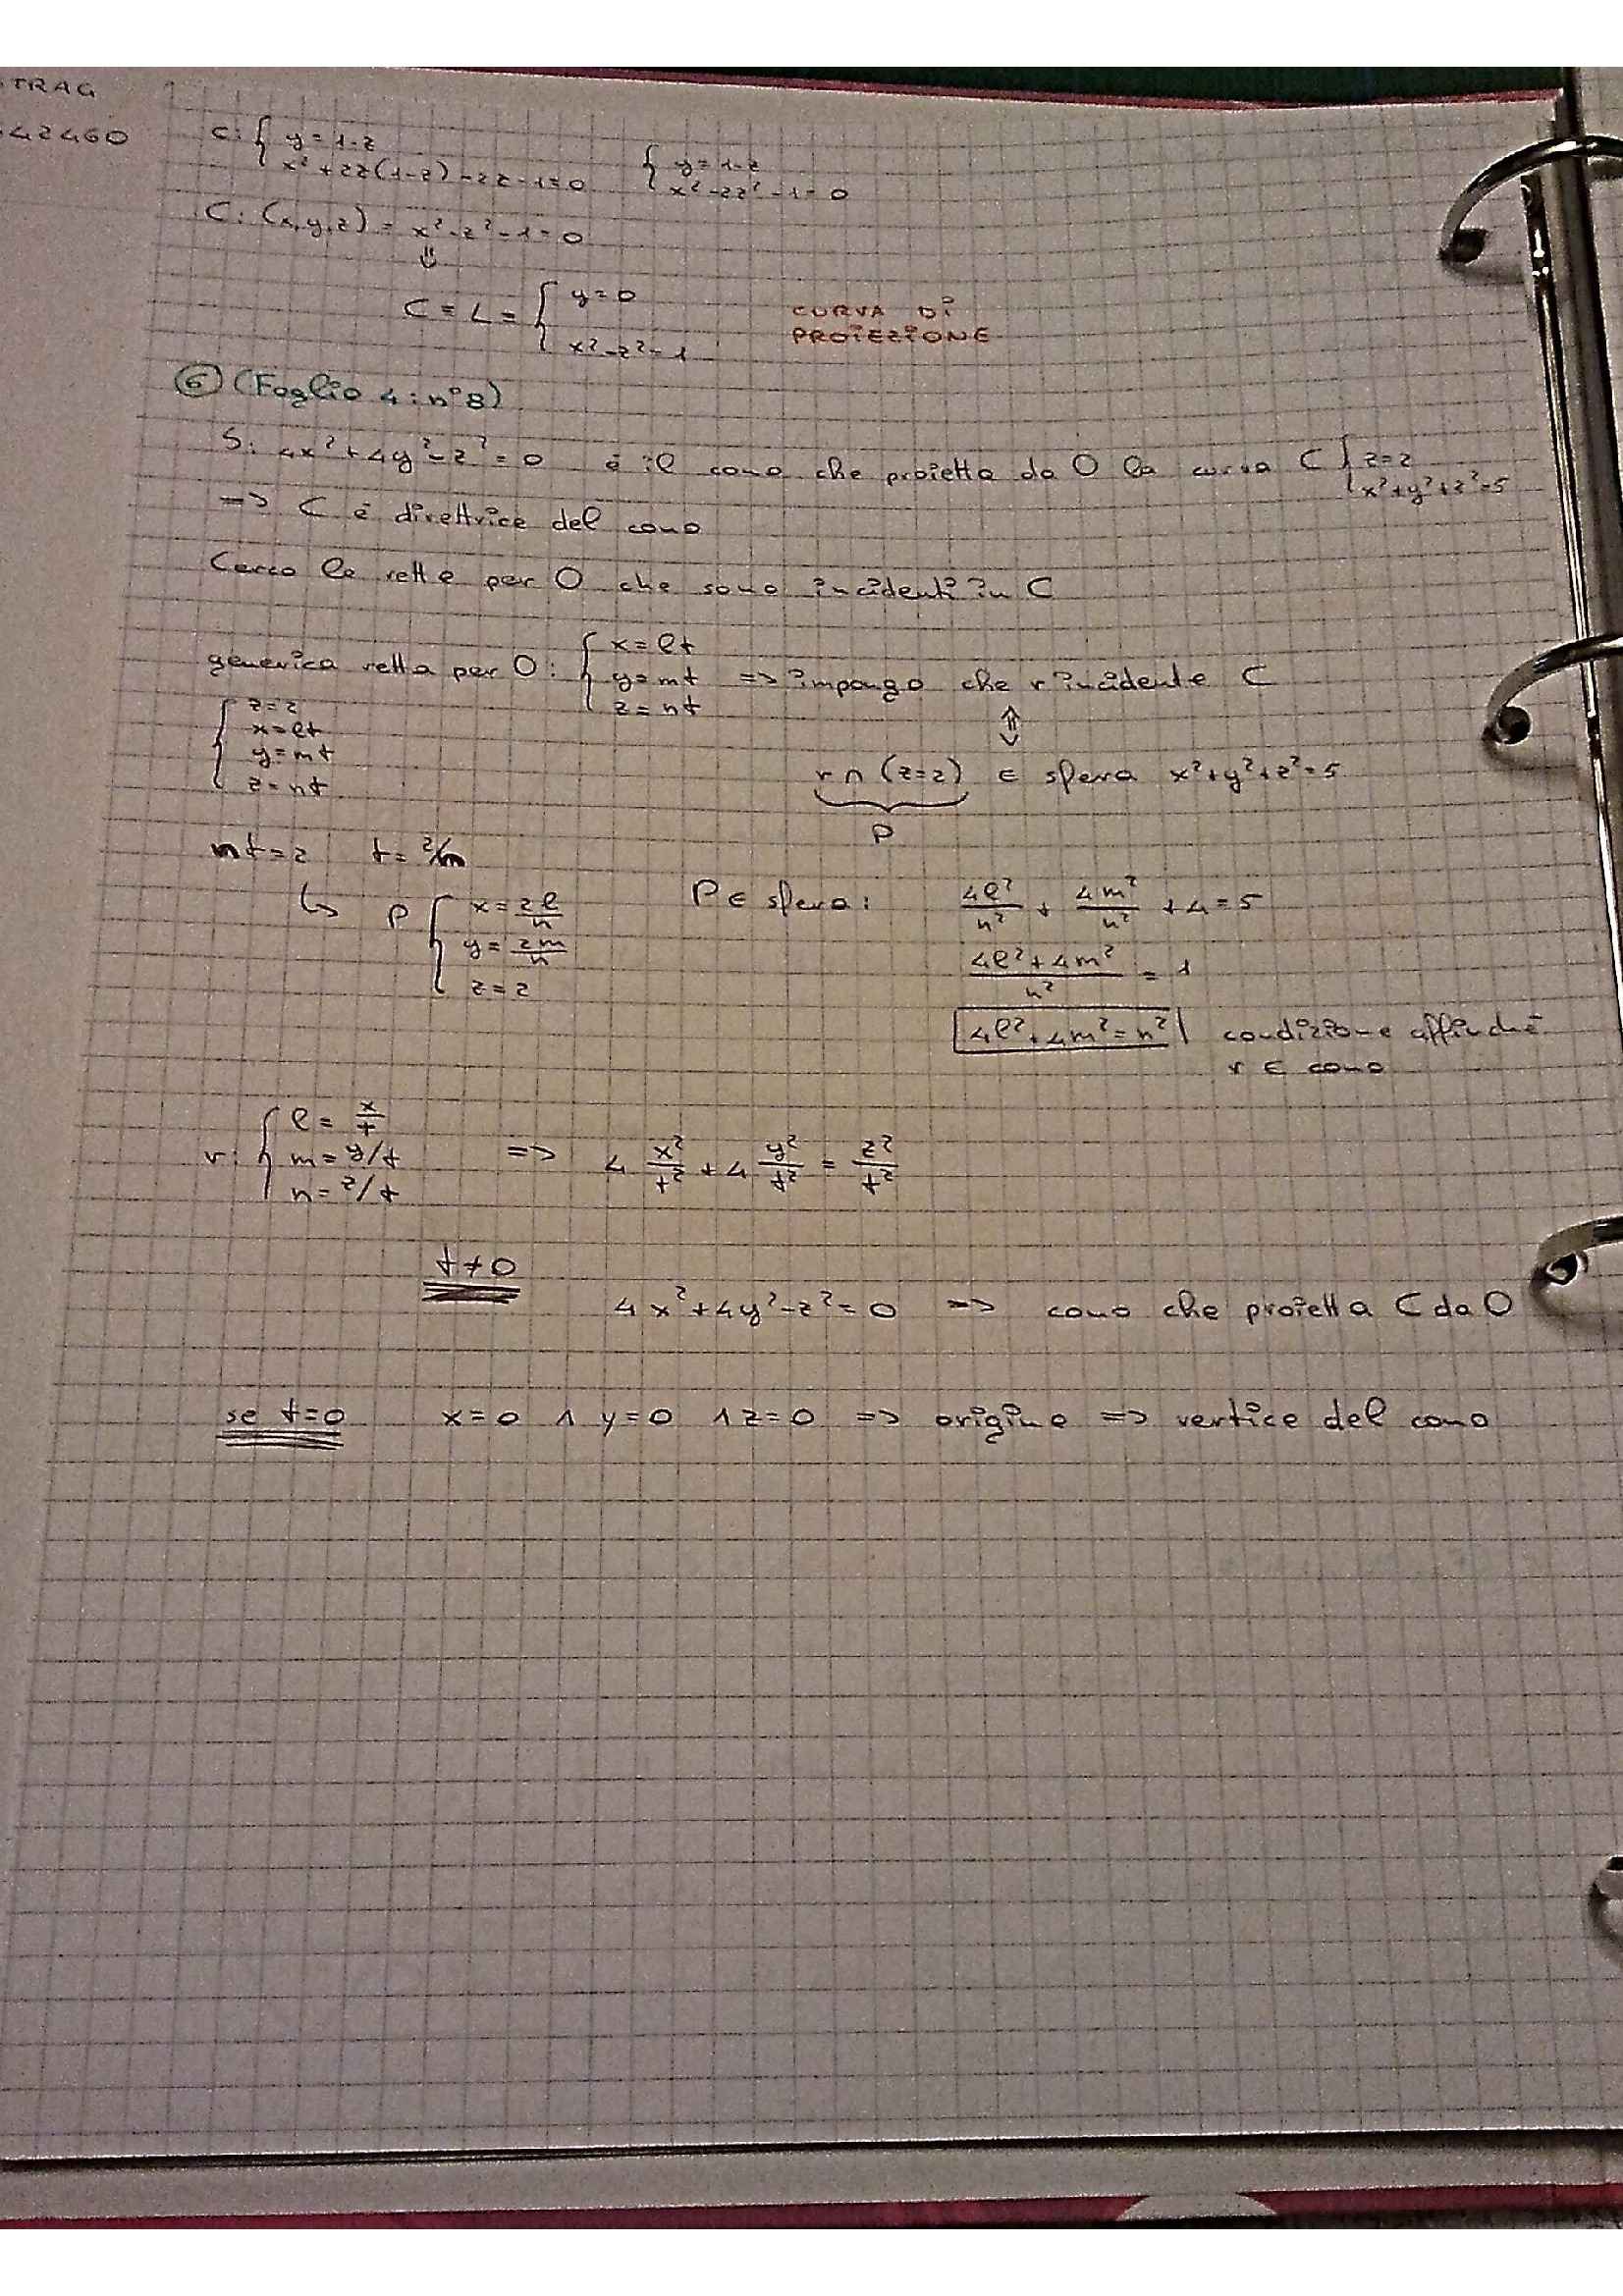 TRAG
42460
C: { y = 1-z
x² + 2z(1-z) - 2z - 1 = 0
{ y = 1-z
x² - 2z² - 1 = 0
C: (x, y, z) = x² - z² - 1 = 0
⇓
C = L = { y = 0
x² - z² = 1
CURVA DI
PROIEZIONE
⑥ (Foglio 4: n°8)
S: 4x² + 4y² - z² = 0 è il cono che proietta da O la curva C { z = 2
x² + y² + z² = 5
=> C è direttrice del cono
Cerco le rette per O che sono incidenti in C
generica retta per O: { x = lt
y = mt => impongo che r incidente C
z = nt
{ z = 2
x = lt
y = mt
z = nt
⇕
r ∩ (z=2) ∈ sfera x² + y² + z² = 5
P
nt = 2 t = 2/n
↳ P { x = 2l/n
y = 2m/n
z = 2
P ∈ sfera: 4l²/n² + 4m²/n² + 4 = 5
(4l² + 4m²)/n² = 1
4l² + 4m² = n² condizione affinché
r ∈ cono
r: { l = x/t
m = y/t
n = z/t
=> 4 x²/t² + 4 y²/t² = z²/t²
t ≠ 0
4x² + 4y² - z² = 0 => cono che proietta C da O
se t=0 x=0 ∧ y=0 ∧ z=0 => origine => vertice del cono